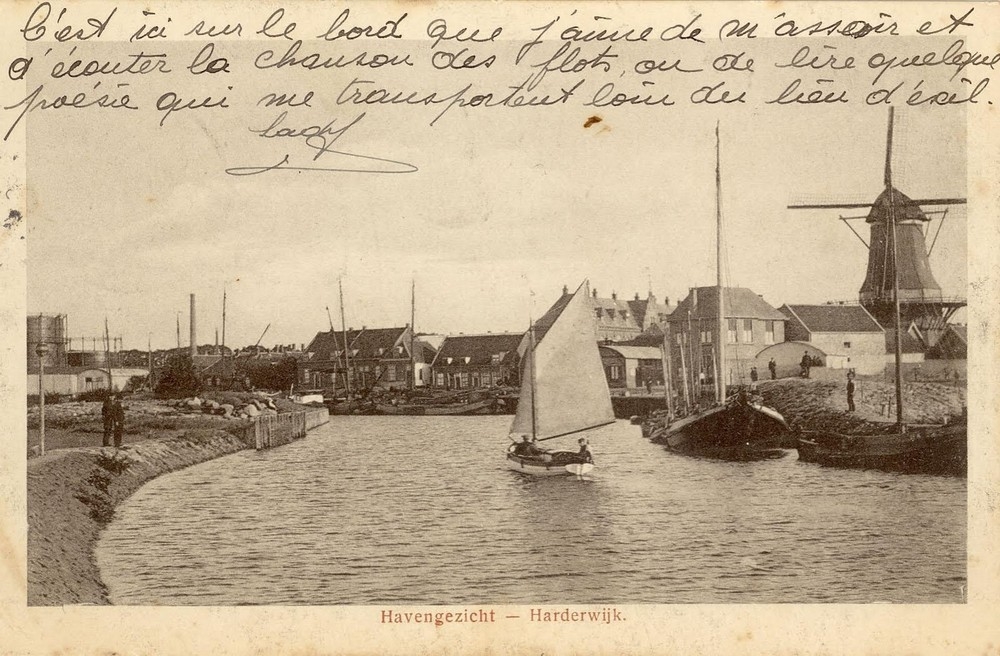 C'est ici sur le bord que j'aime de m'asseoir et
d'écouter la chanson des flots, ou de lire quelque
poésie qui me transportent loin du lieu d'éxil.
Havengezicht — Harderwijk.